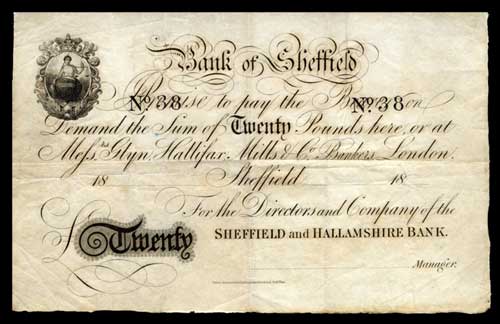 Bank of Sheffield
No. 38 Promise to pay the Bearer on No. 38
Demand the Sum of Twenty Pounds here, or at
Messrs Glyn, Hallifax, Mills & Co. Bankers, London.
18 Sheffield 18
For the Directors and Company of the
£ Twenty SHEFFIELD and HALLAMSHIRE BANK.
Manager.